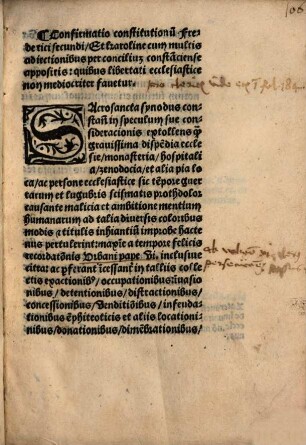 ¶ Confirmatio constitutionū Frederici secundi / Et karoline cum multis
adiectionibus per conciliuʒ constāciense
appositis: quibus libertati ecclesiastice
non mediocriter fauetur.
SAcrosancta synodus constań in speculum sue
consideracionis extollens ꝙ
grauissima dispēdia ecclesie / monasteria / hospitalia / zenodocia / et alia pia loca / ac persone ecclesiastice sic tēpore guerrarum et lugubris scismatis prothdolor
causante malicia et ambitione mentium
humanarum ad talia diuersis coloribus
modis ⁊ titulis inhiantiū improbe hactenus pertulerint: maxīe a tempore felicis
recordatōnis Urbani pape Vi. inclusiue
citrac ac pferant īcessant̄ in tallijs collectis exactionibꝰ / occupationibus īuasionibus / detentionibus / distractionibus /
concessionibus / venditiōibus / infeudationibus ēphiteoticis et alijs locationibus / donationibus / dimēbrationibus /